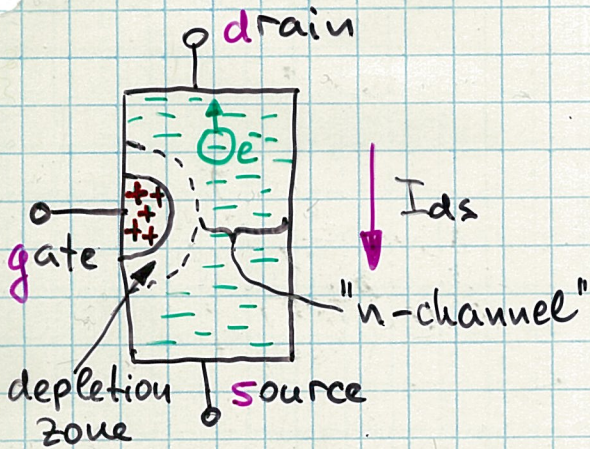 drain
e
Ids
gate
"n-channel"
depletion
zone
source